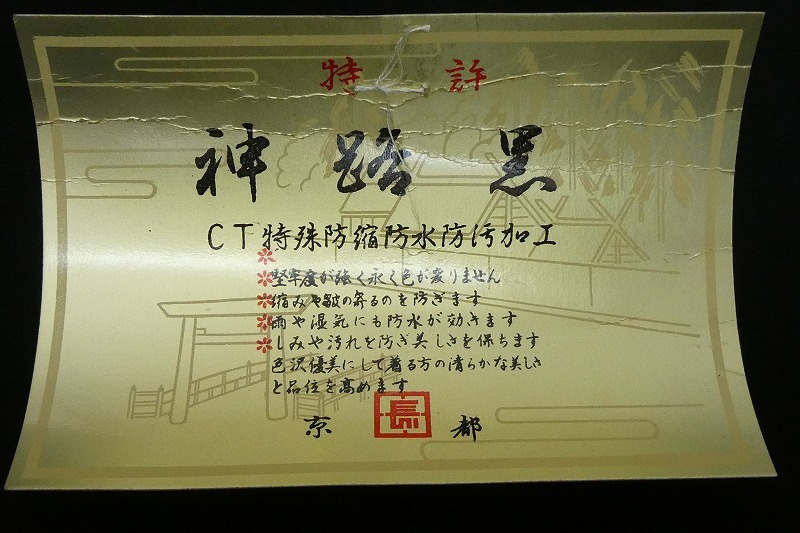 特 許
神 路 黒
CT特殊防縮防水防汚加工
＊堅牢度が強く永く色が変りません
＊縮みや皺の寄るのを防ぎます
＊雨や湿気にも防水が効きます
＊しみや汚れを防ぎ美しさを保ちます
色沢優美にして着る方の清らかな美しさ
と品位を高めます
京 都